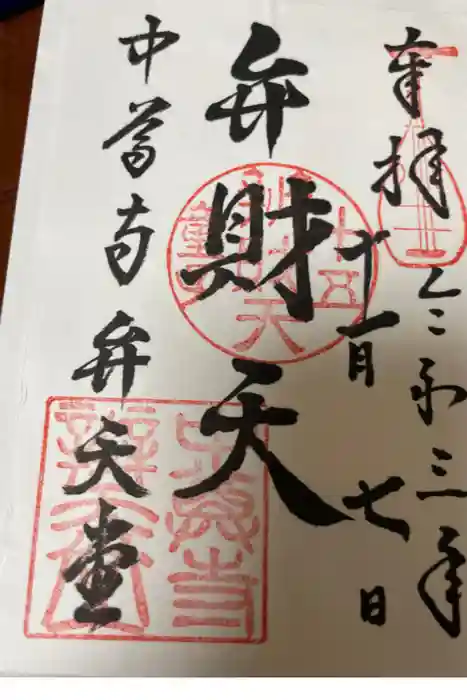 奉拝
令和三年
十一月七日
弁財天
中尊寺弁天堂